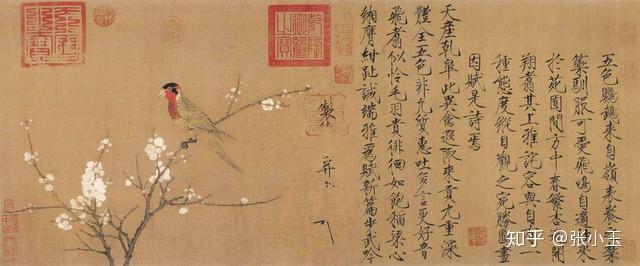 五色鸚鵡來自嶺表養之禁
籞馴服可愛飛鳴自適往來
於苑囿間方中春繁杏遍開
翔翥其上雅詫容與自有一
種態度縱目觀之宛勝圖畫
因賦是詩焉
天產乾皋此異禽遐陬來貢九重深
體全五色非凡質惠吐多言更好音
飛翥似憐毛羽貴徘徊如飽稻粱心
緗膺紺趾誠端雅為賦新篇步武吟
製
知乎 @张小玉